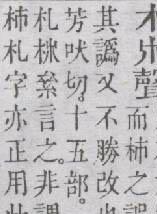 木𣎵聲而柿之誤
其譌又不勝改也
芳吠切。十五部。
札柹絫言之。非謂
柿札字亦正用此